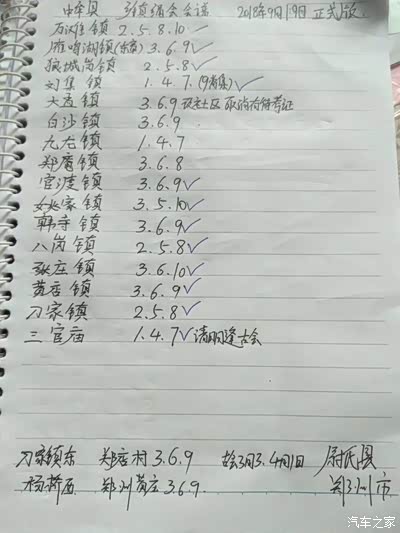 中牟县 乡镇绪会会议 2018年9月19日 正式版
万滩镇 2.5.8.10✓
雁鸣湖镇(东漳) 3.6.9✓
狼城岗镇 2.5.8✓
刘集 镇 1.4.7.(9有集)✓
大孟镇 3.6.9 社区 取消
白沙镇 3.6.9
九龙镇 1.4.7
郑庵镇 3.6.8
官渡镇 3.6.9✓
姚家镇 3.5.10✓
韩寺镇 3.6.9✓
八岗镇 2.5.8✓
张庄镇 3.6.10✓
黄店镇 3.6.9✓
刁家镇 2.5.8✓
三官庙 1.4.7✓清明逢古会
刁家镇东 郑店村3.6.9 古会3月3.4月1日 尉氏县
杨桥西 郑州黄庄3.6.9. 郑州市
汽车之家